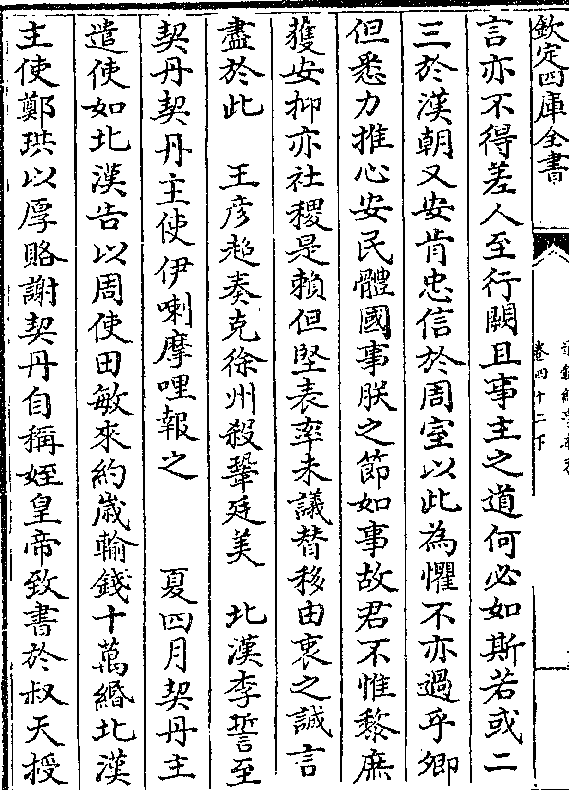 欽定四庫全書
卷四十二下
言亦不得差人至行闕且事主之道何必如斯若或二
三於漢朝又安肯忠信於周室以此為懼不亦過乎卿
但悉力推心安民體國事朕之節如事故君不惟黎庶
獲安抑亦社稷是賴但堅表率未議替移由衷之誠言
盡於此 王彦超奏克徐州殺鞏廷美 北漢李𧦬至
契丹契丹主使伊喇摩哩報之 夏四月契丹主
遣使如北漢告以周使田敏來約嵗輸錢十萬緡北漢
主使鄭珙以厚賂謝契丹自稱姪皇帝致書於叔天授